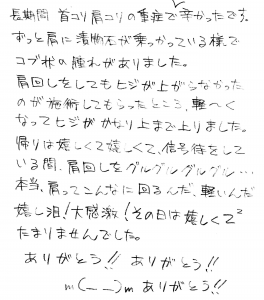 長期間 首コリ肩コリの重症で辛かったです。
ずっと肩に漬物石が乗っかっている様で
コブ状の腫れがありました。
肩回しをしてもヒジが上がらなかった
のが施術してもらったところ、軽〜く
なってヒジがかなり上まで上りました。
帰りは嬉しくて嬉しくて、信号待をして
いる間、肩回しをグルグルグルグル…
本当、肩ってこんなに回るんだ、軽いんだ
嬉し泪!大感激!その日は嬉しくて²
たまりませんでした。
ありがとう!! ありがとう!!
m(__)m ありがとう!!